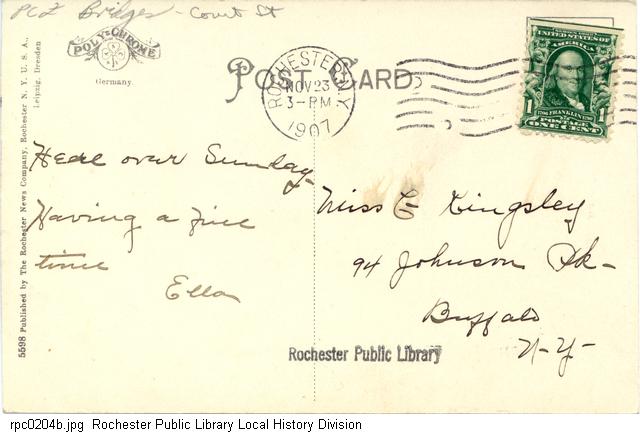 PCZ Bridges - Court St
POLY-CHROME
Germany.
POST CARD
ROCHESTER, N.Y.
NOV 23
3-PM
1907
UNITED STATES OF AMERICA
1706 FRANKLIN 1790
1 1
POSTAGE
ONE CENT
Here over Sunday.
Having a fine
time
Ella
Miss E Kingsley
94 Johnson Pk-
Buffalo
N-Y-
Rochester Public Library
5598 Published by The Rochester News Company, Rochester N. Y. U. S. A.,
Leipzig, Dresden
rpc0204b.jpg Rochester Public Library Local History Division